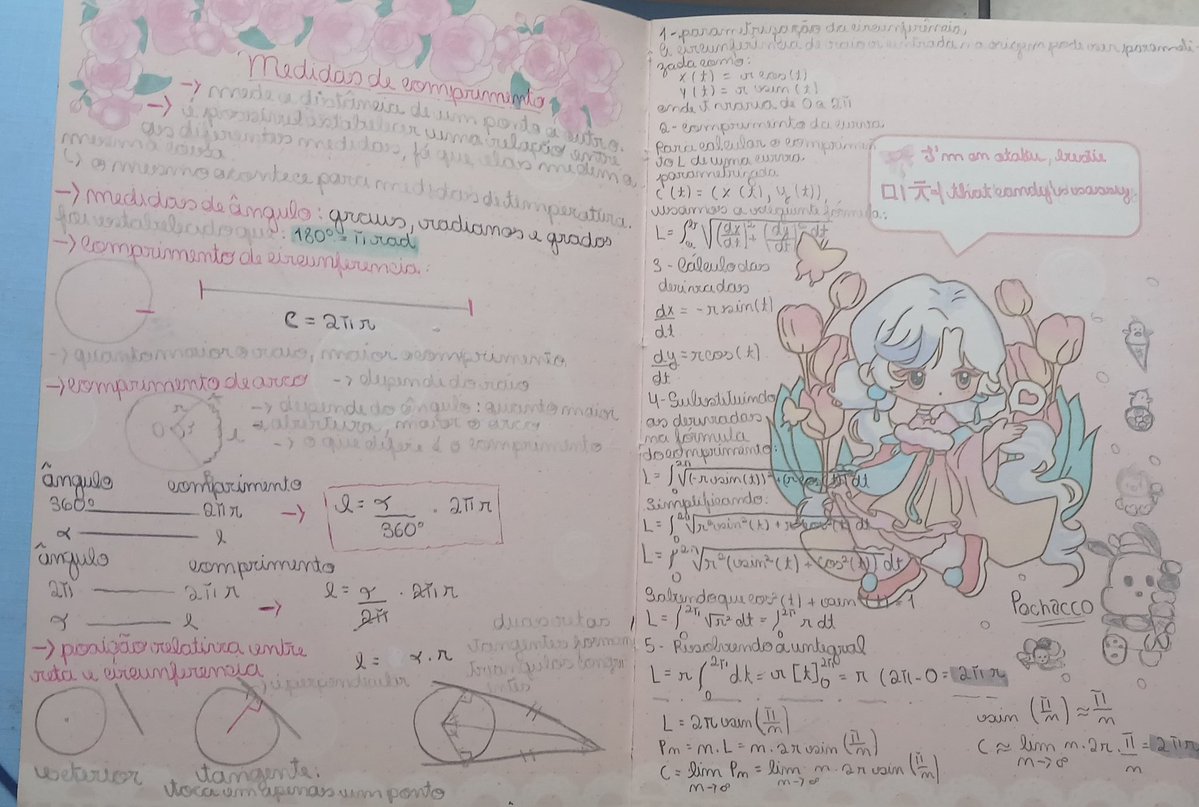 Medidas de comprimento
→ mede a distância de um ponto a outro.
→ é possível estabelecer uma relação entre
as diferentes medidas, já que elas medem a
mesma coisa
↳ o mesmo acontece para medidas de temperatura.
→ medidas de ângulo: graus, radianos e grados
foi estabelecido que: 180° = π rad
→ comprimento de circunferencia.
C = 2πr
→ quanto maior o raio, maior o comprimento
→ comprimento de arco → depende do raio
→ depende do ângulo: quanto maior
a abertura, maior o arco
→ o que difere é o comprimento
r
O
l
ângulo comprimento
360° 2πr
α l
→ l = α/360° · 2πr
ângulo comprimento
2π 2πr
α l
→ l = α/2π · 2πr
l = α.r
→ posição relativa entre
reta e circunferencia
→ é perpendicular
duas retas
tangentes formam
exterior
tangente:
toca em apenas um ponto
1 - parametrização da circunferência,
a circunferência de raio r centrada na origem pode ser parametri-
zada como:
x(t) = r cos(t)
y(t) = r sin(t)
onde t varia de 0 a 2π
2 - comprimento da curva
para calcular o comprimen
to L de uma curva
parametrizada
C(t) = (x(t), y(t))
usamos a seguinte fórmula:
L = ∫ √((dx/dt)² + (dy/dt)²) dt
3 - Cálculo das
derivadas
dx/dt = -r sin(t)
dy/dt = r cos(t)
4 - Substituindo
as derivadas
na fórmula
do comprimento:
L = ∫₀^2π √((-r sin(t))² + (r cos(t))²) dt
Simplificando:
L = ∫₀^2π √(r² sin²(t) + r² cos²(t)) dt
L = ∫₀^2π √(r²(sin²(t) + cos²(t))) dt
Sabendo que cos²(t) + sin²(t) = 1
L = ∫₀^2π √r² dt = ∫₀^2π r dt
5 - Resolvendo a integral
L = r ∫₀^2π dt = r [t]₀^2π = r (2π - 0 = 2πr
L = 2r sin (π/n)
Pn = n. L = n. 2r sin (π/n)
C = lim n→∞ Pn = lim n→∞ n. 2r sin (π/n)
sin (π/n) ≈ π/n
C ≈ lim n→∞ n. 2r. π/n = 2πr
I'm an otaku, bestie
that candy is
Pochacco